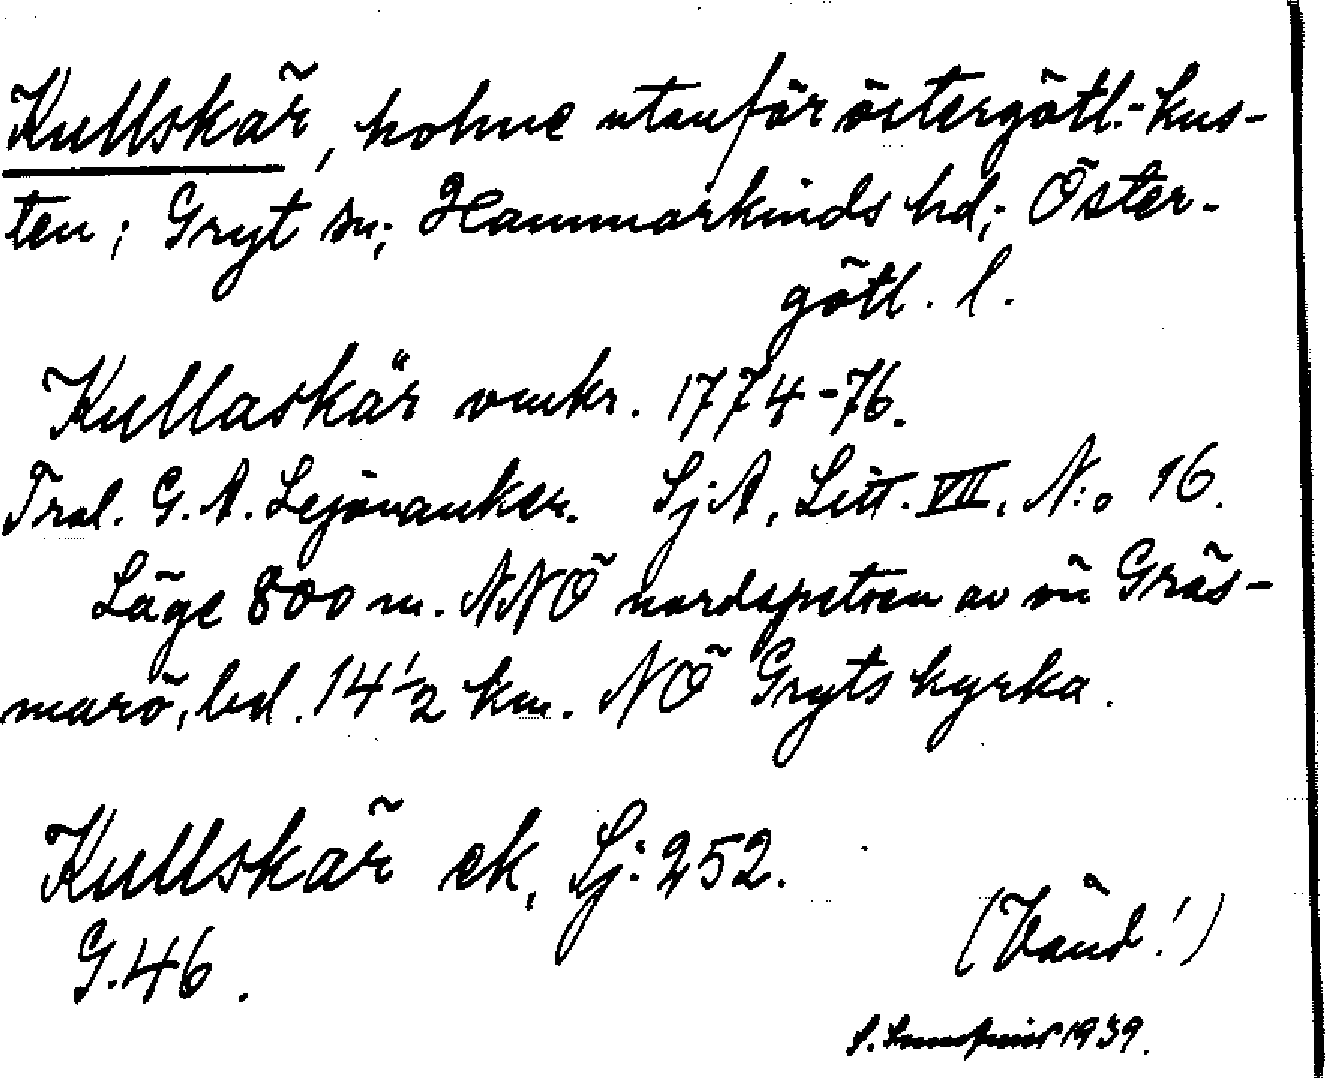 Kullskär, holme utanför östergötl.-kus-
ten; Gryt sn; Hammarkinds hd; Öster-
götl. l.
Kullaskär omkr. 1774-76.
Trol. G. A. Lejonanker. SjA, Litt. VII, N:o 16.
Läge 800 m. NNÖ nordspetsen av ön Gräs-
marö, bel. 14 1/2 km. NÖ Gryts kyrka.
Kullskär ek, Sj: 252.
G. 46.
(Vänd!)
1939.